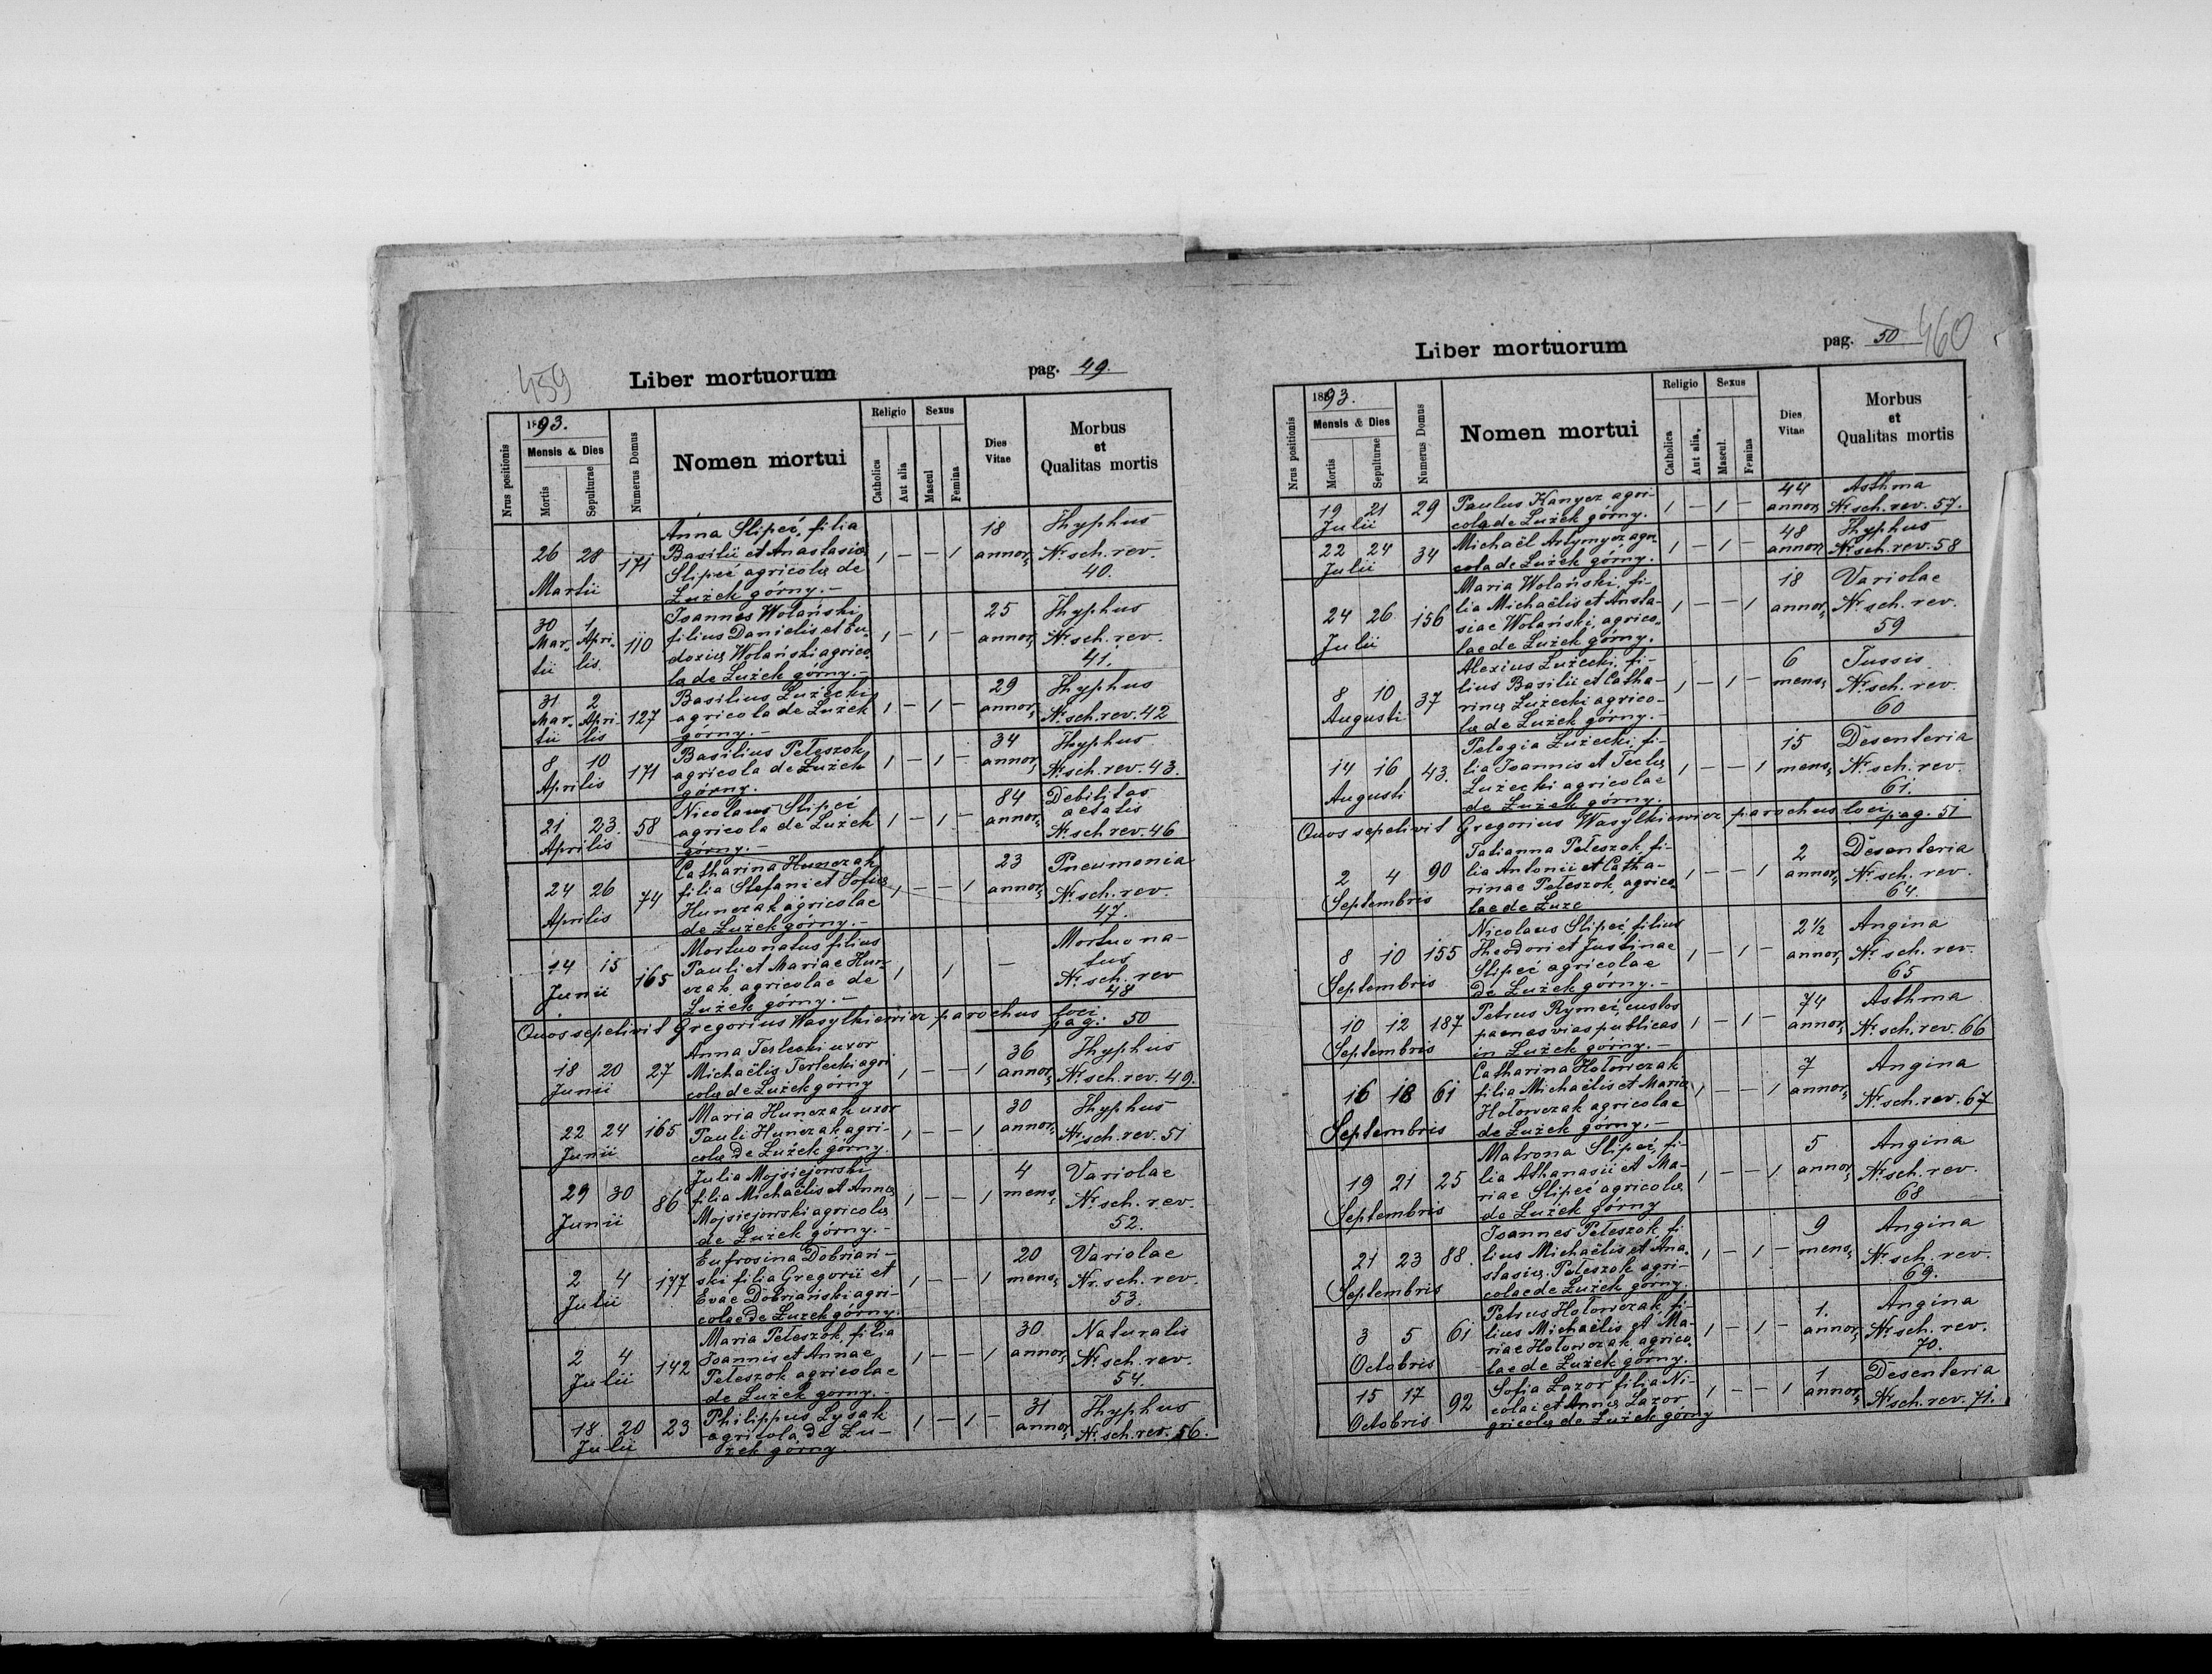 459
Liber mortuorum
pag. 49.
Nrus positionis
1893.
Mensis & Dies
Mortis
Sepulturae
Numerus Domus
Nomen mortui
Religio
Catholica
Aut alia
Sexus
Mascul
Femina
Dies Vitae
Morbus
et
Qualitas mortis
Anna Slipeć, filia
Basilii et Anastasiae
Slipeć agricolae de
Łużek górny. –
26 28 Martii 171 1 – – 1 18 annor, Thyphus Nr. sch. rev. 40.
Joannes Wolański,
filius Danielis et Eu-
doxiae Wolański agrico-
la de Łużek górny. –
30 Martii 1 Aprilis. 110 1 – 1 – 25 annor, Thyphus Nr. sch. rev. 41.
Basilius Łużecki,
agricola de Łużek
górny. –
31 Martii 2 Aprilis 127 1 – 1 – 29 annor, Thyphus Nr. sch. rev. 42
Basilius Pełeszok,
agricola de Łużek
górny.
8 10 Aprilis 171 1 – 1 – 34 annor, Thyphus Nr. sch. rev. 43.
Nicolaus Slipeć
agricola de Łużek
górny. –
21 23. Aprilis 58 1 – 1 – 84 annor, Debilitas aetatis Nr. sch rev. 46
Catharina Hunczak,
filia Stefani et Sofiae
Hunczak agricolae
de Łużek górny. –
24 26 Aprilis 74 1 – – 1 23 annor, Pneumonia Nr. sch. rev. 47.
Mortuo natus filius
Pauli et Mariae Hun-
czak agricolae de
Łużek górny. –
14 15 Junii 165 1 1 – Mortuo na-
tus Nr. sch. rev 48
Quos sepelivit Gregorius Wasylkiewicz parochus loci
pag. 50
Anna Terlecki uxor
Michaëlis Terlecki agri
colae de Łużek górny
18 20 Junii 27 1 – – 1 36 annor, Thyphus Nr. sch. rev. 49.
Maria Hunczak uxor
Pauli Hunczak agri-
colae de Łużek górny.
22 24 Junii 165 1 – – 1 30 annor, Thyphus Nr. sch. rev. 51
Julia Mojsiejowski
filia Michaëlis et Annae
Mojsiejowski agricolae
de Łużek górny. –
29 30 Junii 86 1 – – 1 4 mens, Variolae Nr. sch. rev. 52.
Eufrosina Dobriań-
ski filia Gregorii et
Evae Dobriański agri-
colae de Łużek górny.
2 4 Julii 177 1 – – 1 20 mens, Variolae Nr. sch. rev. 53.
Maria Pełeszok, filia
Joannis et Annae
Pełeszok agricolae
de Łużek górny. –
2 4 Julii 142 1 – – 1 30 annor, Naturalis Nr. sch. rev. 54.
Philippus Lysak
agricola de Łu-
żek górny
18 20 Julii 23 1 – 1 – 31 annor, Thyphus Nr. sch. rev. 56.
460
Liber mortuorum
pag. 50
Nrus positionis
1893.
Mensis & Dies
Mortis
Sepulturae
Numerus Domus
Nomen mortui
Religio
Catholica
Aut alia,
Sexus
Mascul.
Femina
Dies Vitae
Morbus
et
Qualitas mortis
Paulus Kanycz agri-
cola de Łużek górny.
19 21 Julii 29 1 – 1 – 44 annor, Asthma Nr. sch. rev. 57.
Michaël Artymycz agri
cola de Łużek górny.
22 24 Julii 34 1 – 1 – 48 annor, Thyphus Nr. sch. rev. 58
Maria Wolański, fi-
lia Michaëlis et Ansta-
siae Wolański, agrico-
lae de Łużek górny.
24 26 Julii 156 1 – – 1 18 annor, Variolae Nr. sch. rev. 59
Alexius Łużecki, fi-
lius Basilii et Catha-
rinae Łużecki agrico-
lae de Łużek górny. –
8 10 Augusti 37 1 – 1 – 6 mens, Tussis Nr. sch. rev. 60
Pelagia Łużecki, fi-
lia Joannis et Teclae
Łużecki agricolae
de Łużek górny.
14 16 Augusti 43. 1 – – 1 15 mens, Desenteria Nr. sch. rev. 61.
Quos sepelivit Gregorius Wasylkiewicz parochus loci pag. 51
Tatianna Pełeszok, fi-
lia Antonii et Catha-
rinae Pełeszok, agrico-
lae de Łuże
2 4 Septembris 90 1 – – 1 2 annor, Desenteria Nr. sch. rev. 64.
Nicolaus Slipeć, filius
Theodori et Justinae
Slipeć agricolae
de Łużek górny. –
8 10 Septembris 155 1 – 1 – 2 1/2 annor, Angina Nr. sch. rev. 65
Petrus Rymeć, custos
paenes vias publicas
in Łużek górny. –
10 12 Septembris 187 1 – 1 – 74 annor, Asthma Nr. sch. rev. 66
Catharina Hołowczak
filia Michaëlis et Mariae
Hołowczak agricolae
de Łużek górny. –
16 18 Septembris 61 1 – – 1 7 annor, Angina Nr. sch. rev. 67
Matrona Slipeć, fi-
lia Athanasii et Ma-
riae Slipeć agricolae
de Łużek górny
19 21 Septembris 25 1 – – 1 5 annor, Angina Nr. sch. rev. 68
Joannes Pełeszok, fi-
lius Michaëlis et Ana-
stasiae Pełeszok agri-
colae de Łużek górny.
21 23 Septembris 88. 1 – 1 – 9 mens, Angina Nr. sch. rev. 69.
Petrus Hołowczak, fi-
lius Michaëlis et Ma-
riae Hołowczak, agrico-
lae de Łużek górny.
3 5 Octobris 61 1 – 1 – 1. annor, Angina Nr. sch. rev. 70.
Sofia Lazor filia Ni-
colai et Annae Lazor
gricolae de Łużek górny
15 17 Octobris 92 1 – – 1 1 annor, Desenteria Nr. sch. rev. 71.